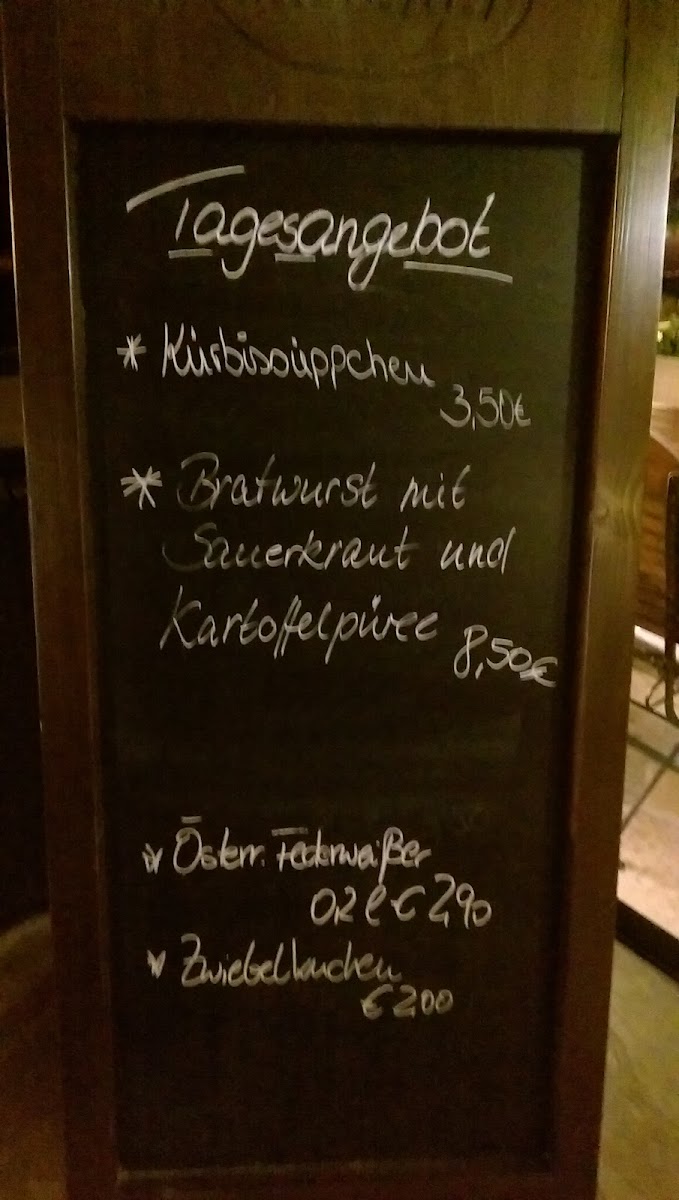 Tagesangebot
* Kürbissüppchen
3,50€
* Bratwurst mit
Sauerkraut und
Kartoffelpüree 8,50€
* Österr. Federweißer
0,2 l € 2,90
* Zwiebelkuchen
€ 2,00